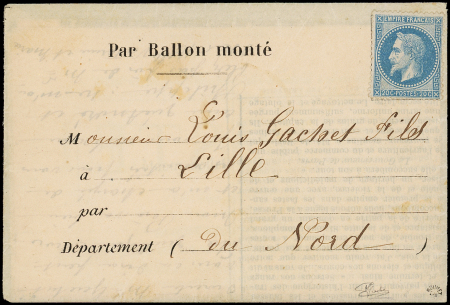 Par Ballon monté
EMPIRE FRANÇAIS
20C POSTES 20C
Monsieur Louis Gachet Fils
à Lille
par
Département (du Nord)